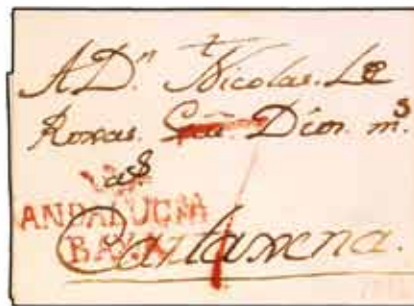 A Dn. Nicolas. Le
Roxas. Dios. ms.
as.
ANDALUCIA
BAXA
Cartaxena.